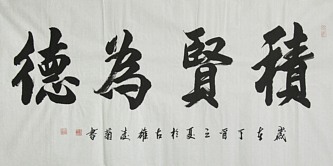 積賢為德
歲在丁酉之夏於古雍凌翁書